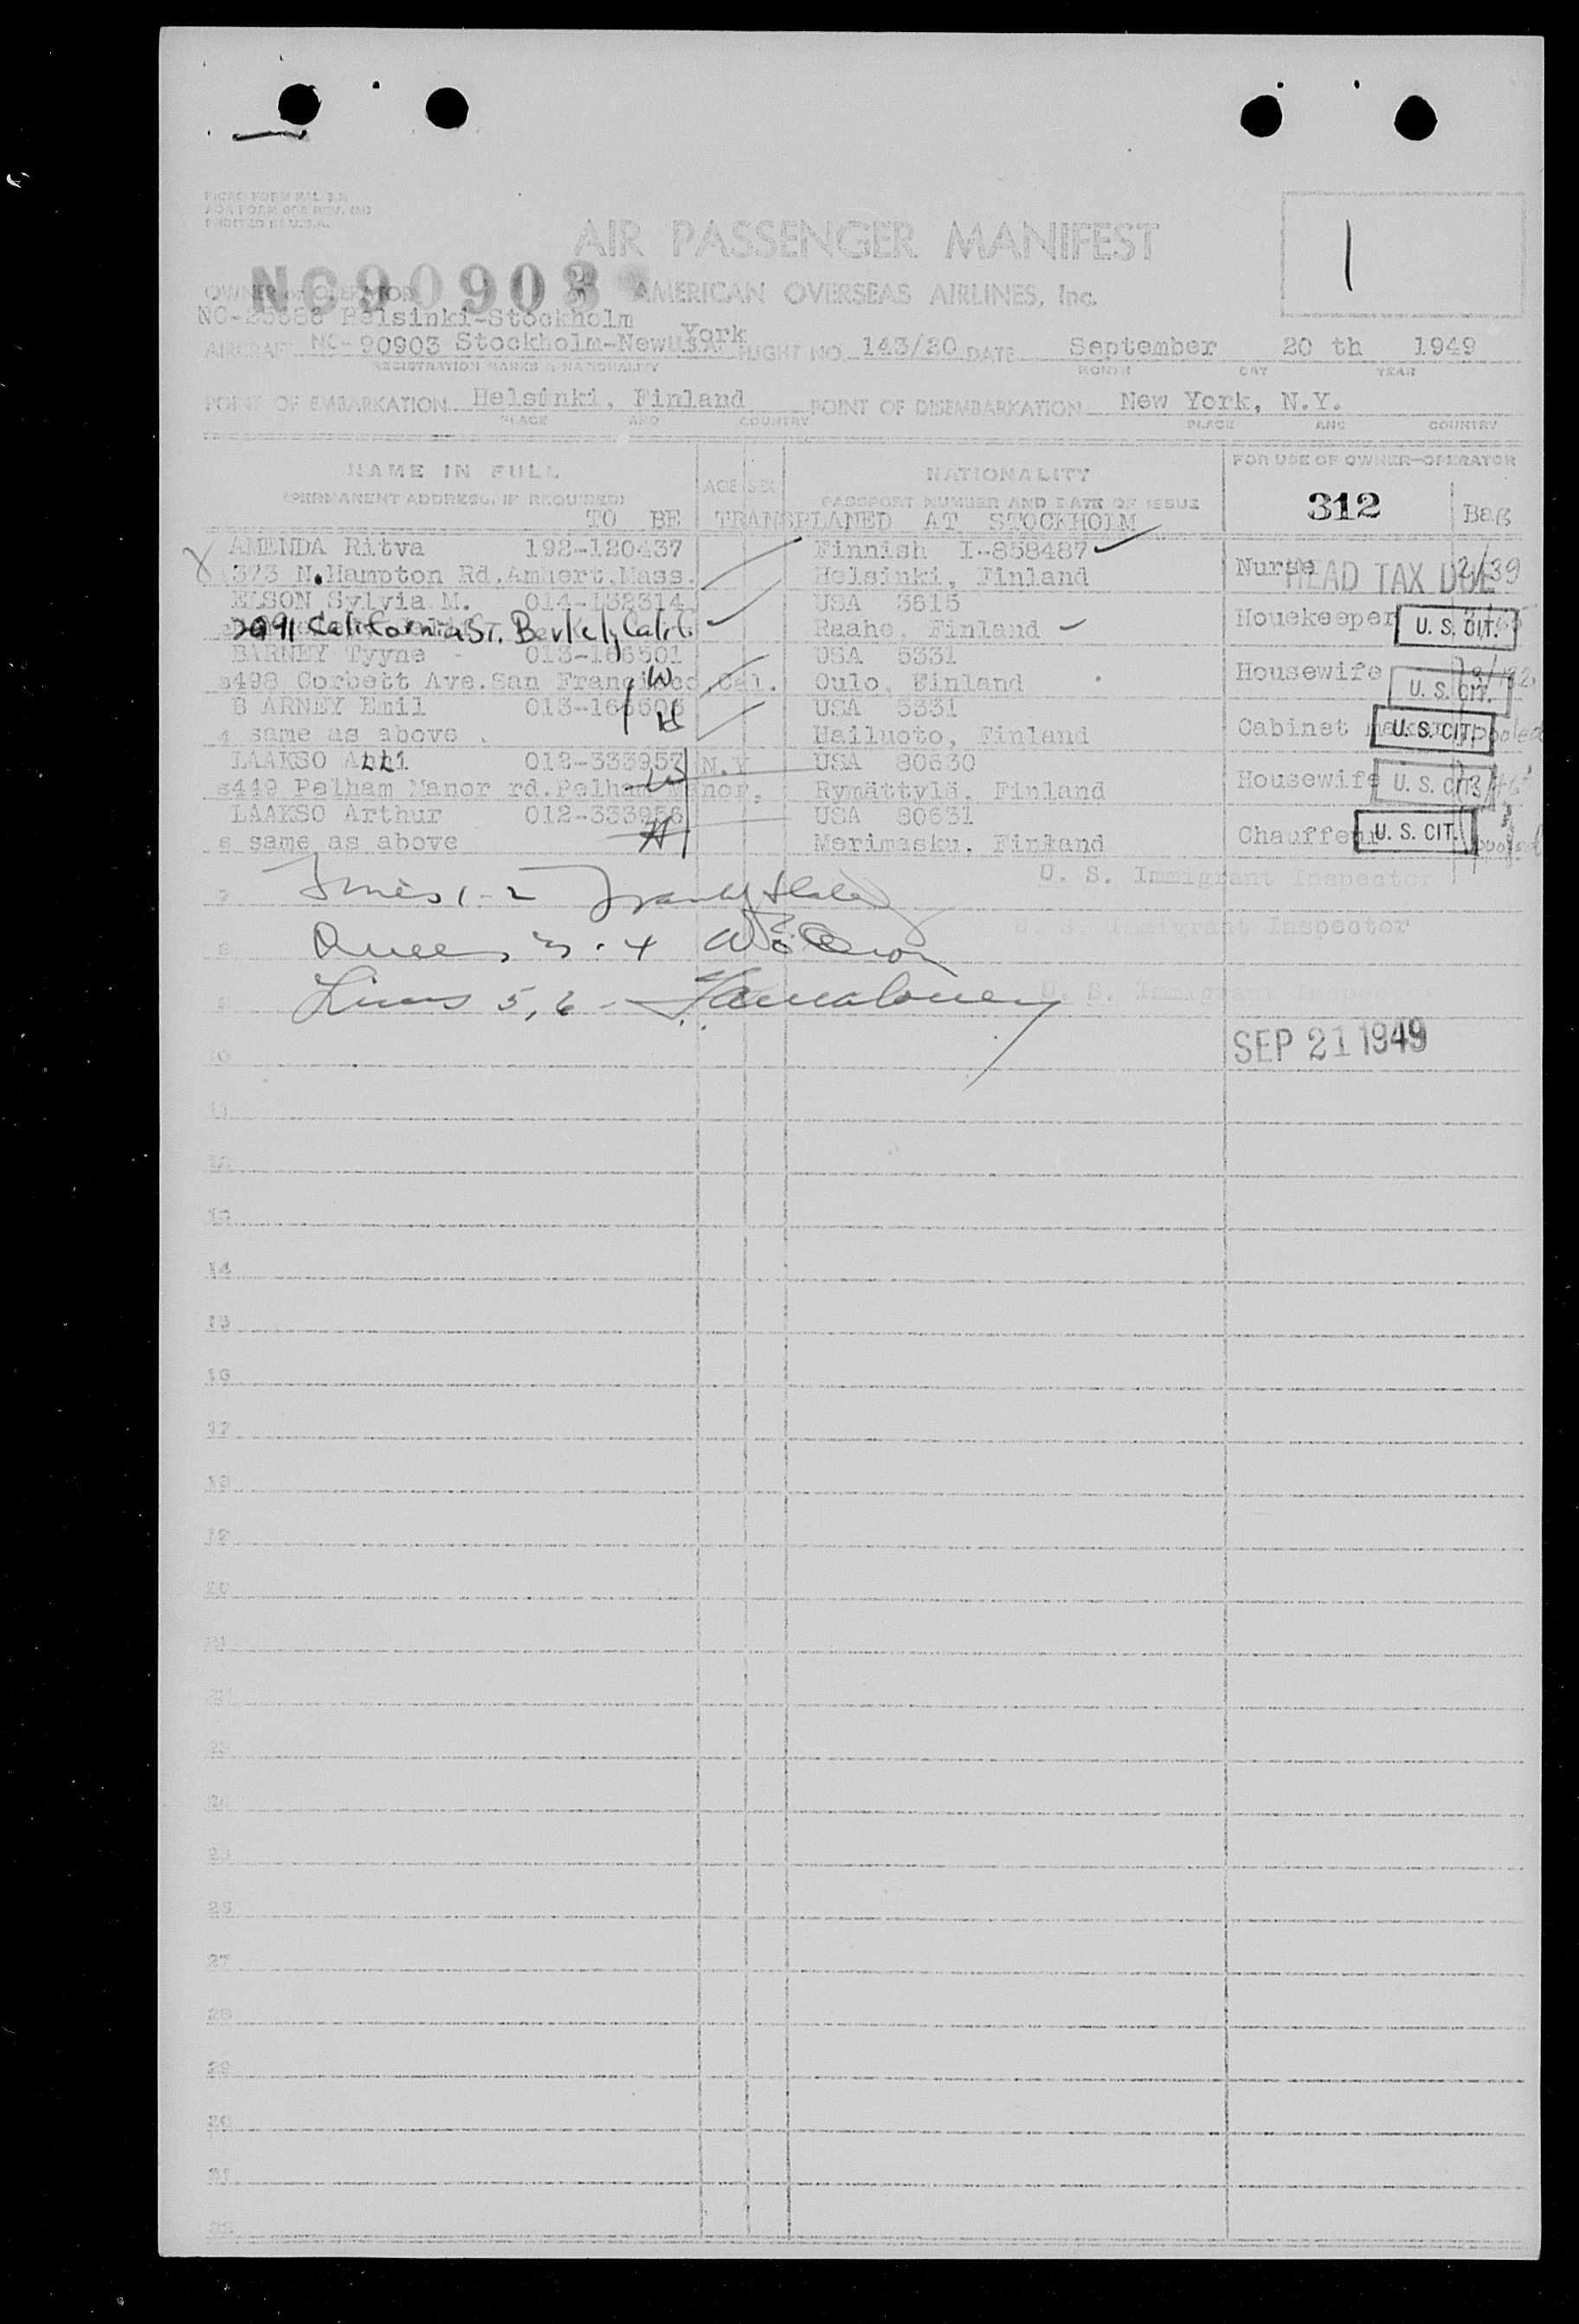 PRINTED IN U.S.A.
AIR PASSENGER MANIFEST
1
OWNER OR OPERATOR NC90903 AMERICAN OVERSEAS AIRLINES, Inc.
Helsinki-Stockholm
AIRCRAFT NC-90903 Stockholm-New York FLIGHT NO. 143/20 DATE September 20 th 1949
REGISTRATION MARKS & NATIONALITY MONTH DAY YEAR
POINT OF EMBARKATION Helsinki, Finland POINT OF DISEMBARKATION New York, N.Y.
PLACE AND COUNTRY PLACE AND COUNTRY
NAME IN FULL AGE SEX NATIONALITY FOR USE OF OWNER-OPERATOR
(PERMANENT ADDRESS, IF REQUIRED) PASSPORT NUMBER AND DATE OF ISSUE 312 Bag
TO BE TRANSPLANED AT STOCKHOLM
AMENDA Ritva 192-120437 Finnish I-858487
373 N.Hampton Rd.Amhert,Mass. Helsinki, Finland Nurse HEAD TAX DUE 2/39
ELSON Sylvia M. 014-132314 USA 3615
2091 California St. Berkely, Calif. Raahe, Finland Houekeeper U. S. CIT.
BARNEY Tyyne 013-166501 USA 5331
498 Corbett Ave.San Francisco,Cal. W Oulo, Finland Housewife U. S. CIT.
B ARNEY Emil USA 5331
4 same as above H Hailuoto, Finland Cabinet maker U. S. CIT. pooled
LAAKSO 012-333957 N.Y USA 80630
449 Pelham Manor rd.Pelham Manor, W Rymättylä, Finland Housewife U. S. CIT.
LAAKSO Arthur 012-333956 USA 80631
6 same as above H Merimasku, Finland Chauffeur U. S. CIT. pooled
U. S. Immigrant Inspector
7 Lines 1-2
U. S. Immigrant Inspector
8 3.4
9 Lines 5,6 - U. S. Immigrant Inspector
10 SEP 21 1949
11
12
13
14
15
16
17
18
19
20
21
22
23
24
25
26
27
28
29
30
31
32